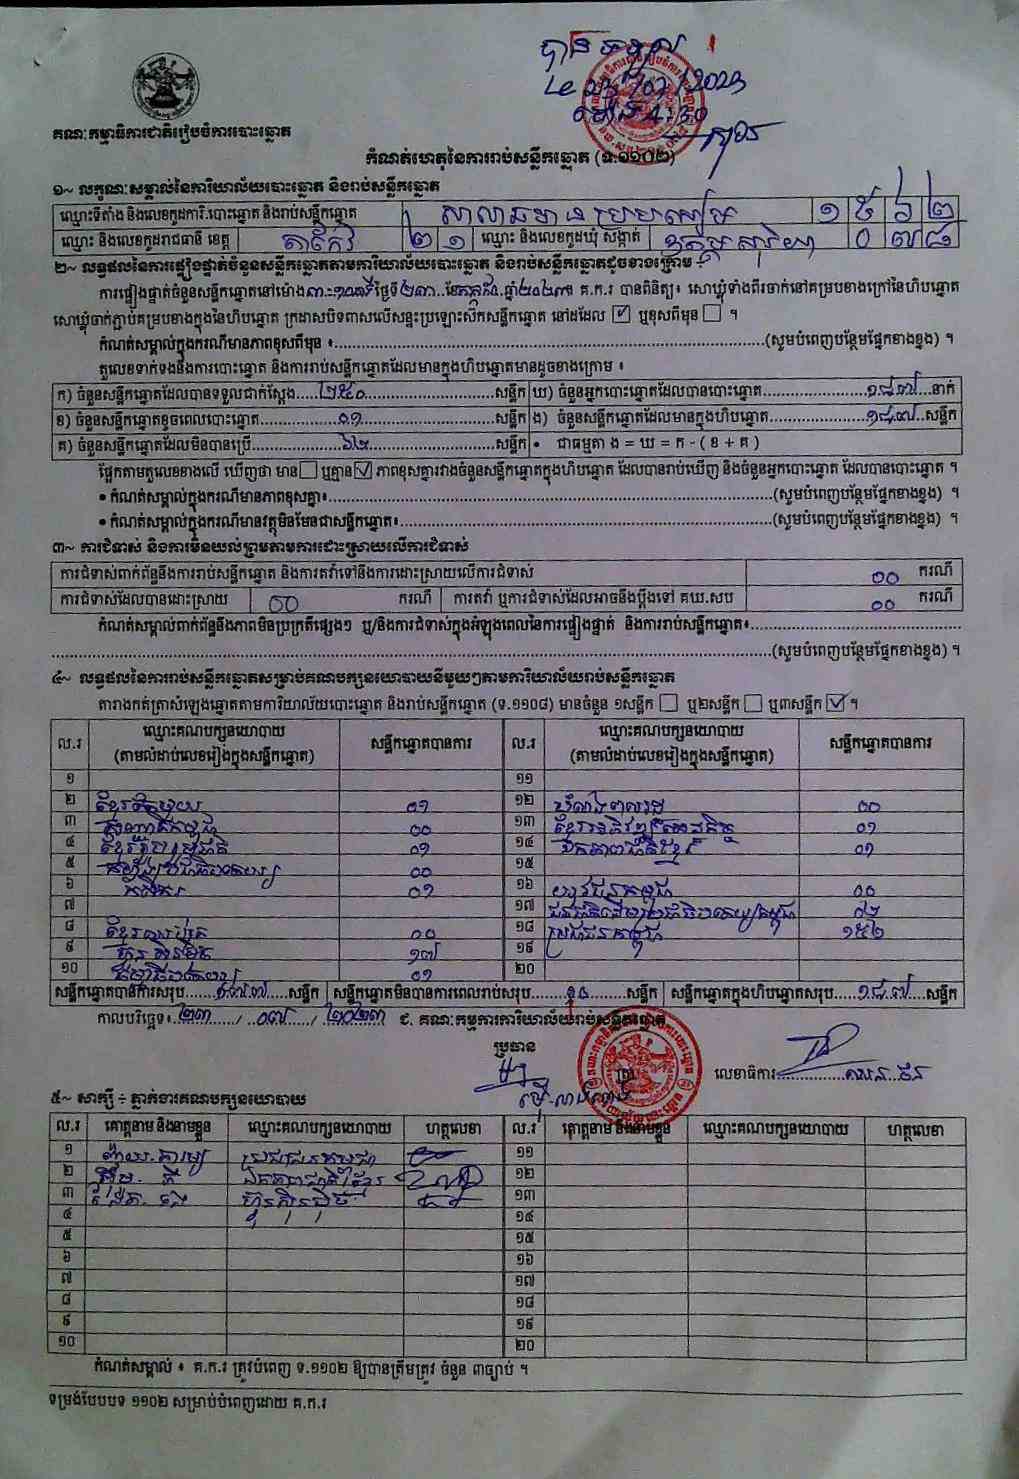 គណៈកម្មាធិការជាតិរៀបចំការបោះឆ្នោត
កំណត់ហេតុនៃការរាប់សន្លឹកឆ្នោត (ទ.១១០២)
១~ លក្ខណៈសម្គាល់នៃការិយាល័យបោះឆ្នោត និងរាប់សន្លឹកឆ្នោត
ឈ្មោះទីតាំង និងលេខកូដការិ.បោះឆ្នោត និងរាប់សន្លឹកឆ្នោត ១ ៥ ៦ ២
ឈ្មោះ និងលេខកូដរាជធានី ខេត្ត តាកែវ ២ ១ ឈ្មោះ និងលេខកូដឃុំ សង្កាត់ ឧត្តមសុរិយា ០ ៧ ៨
២~ លទ្ធផលនៃការផ្ទៀងផ្ទាត់ចំនួនសន្លឹកឆ្នោតតាមការិយាល័យបោះឆ្នោត និងរាប់សន្លឹកឆ្នោតដូចខាងក្រោម ÷
ការផ្ទៀងផ្ទាត់ចំនួនសន្លឹកឆ្នោតនៅម៉ោង ៣:១០នាទី ថ្ងៃទី២៣ ខែកក្កដា ឆ្នាំ២០២៣ គ.ក.រ បានពិនិត្យ៖ សោឃ្លុំទាំងពីរចាក់នៅគម្របខាងក្រៅនៃហិបឆ្នោត
សោឃ្លុំចាក់ភ្ជាប់គម្របខាងក្នុងនៃហិបឆ្នោត ក្រដាសបិទពាសលើសន្ទះប្រឡោះសឹកសន្លឹកឆ្នោត នៅដដែល ☑ ឬខុសពីមុន ☐ ។
កំណត់សម្គាល់ក្នុងករណីមានភាពខុសពីមុន ៖ (សូមបំពេញបន្ថែមផ្នែកខាងខ្នង) ។
តួលេខទាក់ទងនឹងការបោះឆ្នោត និងការរាប់សន្លឹកឆ្នោតដែលមានក្នុងហិបឆ្នោតមានដូចខាងក្រោម ៖
ក) ចំនួនសន្លឹកឆ្នោតដែលបានទទួលជាក់ស្តែង ២៥០ សន្លឹក ឃ) ចំនួនអ្នកបោះឆ្នោតដែលបានបោះឆ្នោត ១៨៧ នាក់
ខ) ចំនួនសន្លឹកឆ្នោតខូចពេលបោះឆ្នោត ០១ សន្លឹក ង) ចំនួនសន្លឹកឆ្នោតដែលមានក្នុងហិបឆ្នោត ១៨៧ សន្លឹក
គ) ចំនួនសន្លឹកឆ្នោតដែលមិនបានប្រើ ៦២ សន្លឹក • ជាធម្មតា ង = ឃ = ក - ( ខ + គ )
ផ្អែកតាមតួលេខខាងលើ ឃើញថា មាន ☐ ឬគ្មាន ☑ ភាពខុសគ្នារវាងចំនួនសន្លឹកឆ្នោតក្នុងហិបឆ្នោត ដែលបានរាប់ឃើញ និងចំនួនអ្នកបោះឆ្នោត ដែលបានបោះឆ្នោត ។
• កំណត់សម្គាល់ក្នុងករណីមានភាពខុសគ្នា៖ (សូមបំពេញបន្ថែមផ្នែកខាងខ្នង) ។
• កំណត់សម្គាល់ក្នុងករណីមានវត្ថុមិនមែនជាសន្លឹកឆ្នោត៖ (សូមបំពេញបន្ថែមផ្នែកខាងខ្នង) ។
៣~ ការជំទាស់ និងការមិនយល់ព្រមតាមការដោះស្រាយលើការជំទាស់
ការជំទាស់ពាក់ព័ន្ធនឹងការរាប់សន្លឹកឆ្នោត និងការតវ៉ាទៅនឹងការដោះស្រាយលើការជំទាស់ ០០ ករណី
ការជំទាស់ដែលបានដោះស្រាយ ០០ ករណី ការតវ៉ា ឬការជំទាស់ដែលអាចនឹងប្តឹងទៅ គឃ.សប ០០ ករណី
កំណត់សម្គាល់ពាក់ព័ន្ធនឹងភាពមិនប្រក្រតីផ្សេងៗ ឬ/និងការជំទាស់ក្នុងអំឡុងពេលនៃការផ្ទៀងផ្ទាត់ និងការរាប់សន្លឹកឆ្នោត៖
(សូមបំពេញបន្ថែមផ្នែកខាងខ្នង) ។
៤~ លទ្ធផលនៃការរាប់សន្លឹកឆ្នោតសម្រាប់គណបក្សនយោបាយនីមួយៗតាមការិយាល័យរាប់សន្លឹកឆ្នោត
តារាងកត់ត្រាសំឡេងឆ្នោតតាមការិយាល័យបោះឆ្នោត និងរាប់សន្លឹកឆ្នោត (ទ.១១០៨) មានចំនួន ១សន្លឹក ☐ ឬ២សន្លឹក ☐ ឬ៣សន្លឹក ☑ ។
ល.រ ឈ្មោះគណបក្សនយោបាយ (តាមលំដាប់លេខរៀងក្នុងសន្លឹកឆ្នោត) សន្លឹកឆ្នោតបានការ ល.រ ឈ្មោះគណបក្សនយោបាយ (តាមលំដាប់លេខរៀងក្នុងសន្លឹកឆ្នោត) សន្លឹកឆ្នោតបានការ
១ ១១
២ ខ្មែរតែមួយ ០១ ១២ ០០
៣ ០០ ១៣ ០១
៤ ០១ ១៤ ឯកភាពជាតិខ្មែរ ០១
៥ ០០ ១៥
៦ កសិករ ០១ ១៦ ០០
៧ ១៧
៨ ០០ ១៨ ប្រជាជនកម្ពុជា ១៥២
៩ ហ៊្វុនស៊ិនប៉ិច ១៧ ១៩
១០ ០១ ២០
សន្លឹកឆ្នោតបានការសរុប ១៧៧ សន្លឹក សន្លឹកឆ្នោតមិនបានការពេលរាប់សរុប ១០ សន្លឹក សន្លឹកឆ្នោតក្នុងហិបឆ្នោតសរុប ១៨៧ សន្លឹក
កាលបរិច្ឆេទ៖ ២៣ / ០៧ / ២០២៣ ជ. គណៈកម្មការការិយាល័យរាប់សន្លឹកឆ្នោត
ប្រធាន
លេខាធិការ
៥~ សាក្សី ÷ ភ្នាក់ងារគណបក្សនយោបាយ
ល.រ គោត្តនាម និងនាមខ្លួន ឈ្មោះគណបក្សនយោបាយ ហត្ថលេខា ល.រ គោត្តនាម និងនាមខ្លួន ឈ្មោះគណបក្សនយោបាយ ហត្ថលេខា
១ ប្រជាជនកម្ពុជា ១១
២ ឯកភាពជាតិខ្មែរ ១២
៣ ហ៊្វុនស៊ិនប៉ិច ១៣
៤ ១៤
៥ ១៥
៦ ១៦
៧ ១៧
៨ ១៨
៩ ១៩
១០ ២០
កំណត់សម្គាល់ ៖ គ.ក.រ ត្រូវបំពេញ ទ.១១០២ ឱ្យបានត្រឹមត្រូវ ចំនួន ៣ច្បាប់ ។
ទម្រង់បែបបទ ១១០២ សម្រាប់បំពេញដោយ គ.ក.រ